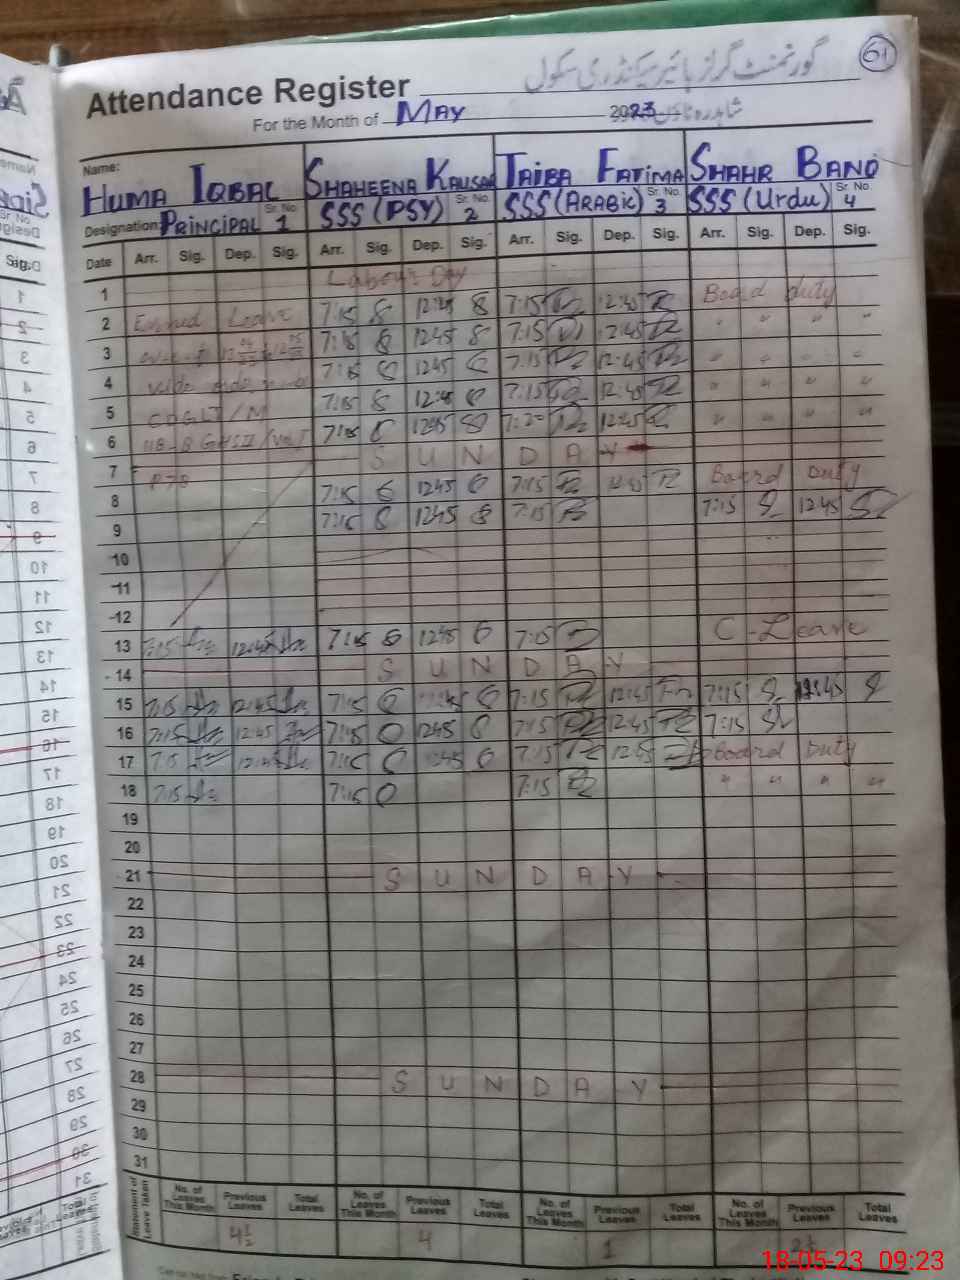 گورنمنٹ گرلز ہائیر سیکنڈری سکول
61
Attendance Register
For the Month of MAY 2023
شاہدرہ ٹاؤن
Name: HUMA IQBAL SHAHEENA KAUSAR TAIBA FATIMA SHAHR BANO
Designation: PRINCIPAL Sr. No. 1 SSS (PSY) Sr. No. 2 SSS (ARABIC) Sr. No. 3 SSS (Urdu) Sr. No. 4
Date Arr. Sig. Dep. Sig. Arr. Sig. Dep. Sig. Arr. Sig. Dep. Sig. Arr. Sig. Dep. Sig.
1 Labour Day
2 Earned Leave 7:15 12:45 7:15 12:45 Board duty
3 7:15 1245 7:15 12:45 " " " "
4 vide 7:15 1245 7:15 12:45 " " " "
5 7:15 12:45 7:15 12:45 " " " "
6 7:15 1245 12:45 " " " "
7 SUNDAY
8 7:15 1245 7:15 Board Duty
9 7:15 1245 7:15 7:15 12:45
10
11
12
13 7:15 12:45 7:15 1245 7:15 C-Leave
14 SUNDAY
15 7:15 12:45 7:15 7:15 12:45 7:15 12:45
16 7:15 12:45 7:15 1245 7:15 12:45 7:15
17 7:15 12:45 7:15 1245 7:15 12:45 Board Duty
18 7:15 7:15 7:15 " " "
19
20
21 SUNDAY
22
23
24
25
26
27
28 SUNDAY
29
30
31
Statement of Leave Taken No. of Leaves This Month Previous Leaves Total Leaves No. of Leaves This Month Previous Leaves Total Leaves No. of Leaves This Month Previous Leaves Total Leaves No. of Leaves This Month Previous Leaves Total Leaves
4½ 4 1
18-05-23 09:23